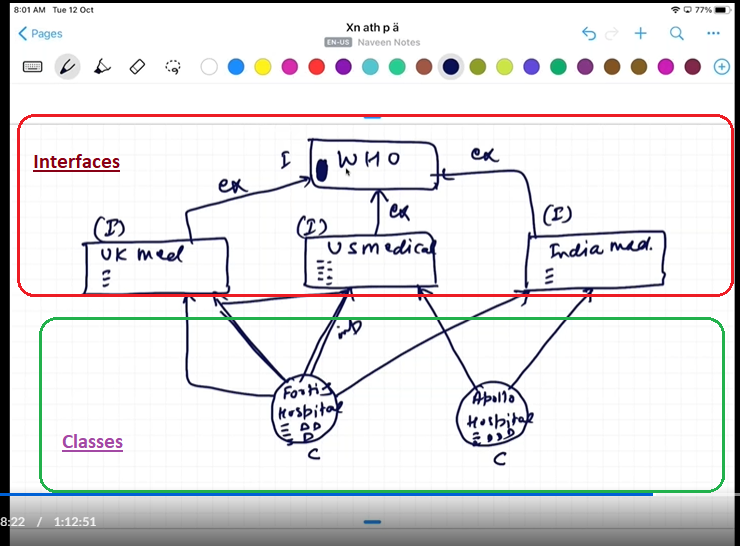 8:01 AM Tue 12 Oct
77%
Pages
Xn ath p ä
EN-US Naveen Notes
Interfaces
I
WHO
ex
ex
ex
(I)
(I)
(I)
UK med
USmedical
India med.
Fortis
Hospital
Apollo
Hospital
C
C
Classes
8:22 / 1:12:51